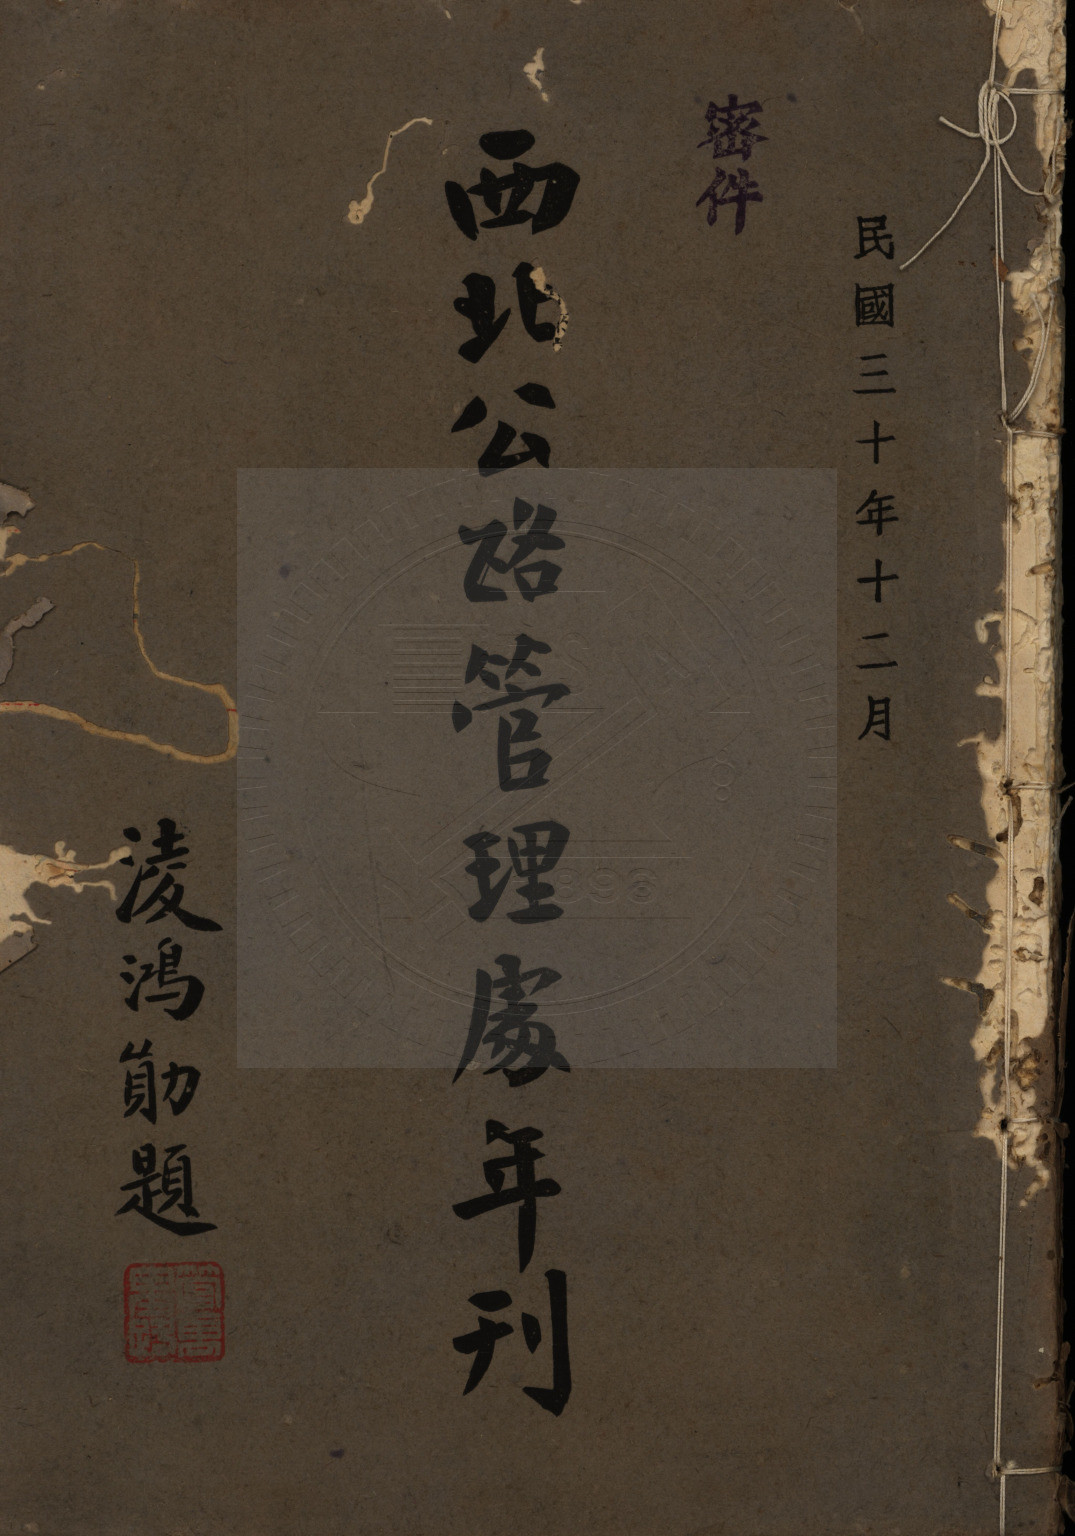 民國三十年十二月
密件
西北公路管理處年刊
凌鴻勛題